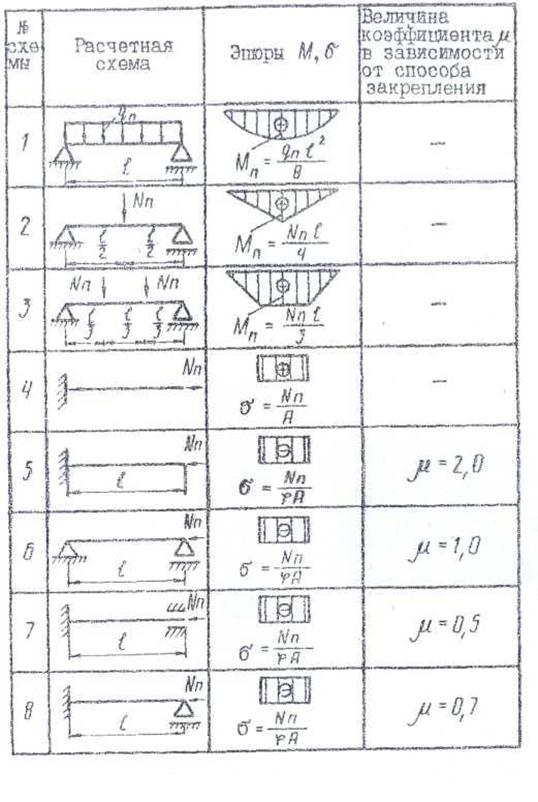 № схемы
Расчетная схема
Эпюры M, σ
Величина коэффициента μ в зависимости от способа закрепления
1
qп
l
Mп = qп l² / 8
—
2
Nп
l/2 l/2
Mп = Nп l / 4
—
3
Nп Nп
l/3 l/3 l/3
Mп = Nп l / 3
—
4
Nп
σ = Nп / A
—
5
Nп
l
σ = Nп / φA
μ = 2,0
6
Nп
l
σ = Nп / φA
μ = 1,0
7
Nп
l
σ = Nп / φA
μ = 0,5
8
Nп
l
σ = Nп / φA
μ = 0,7